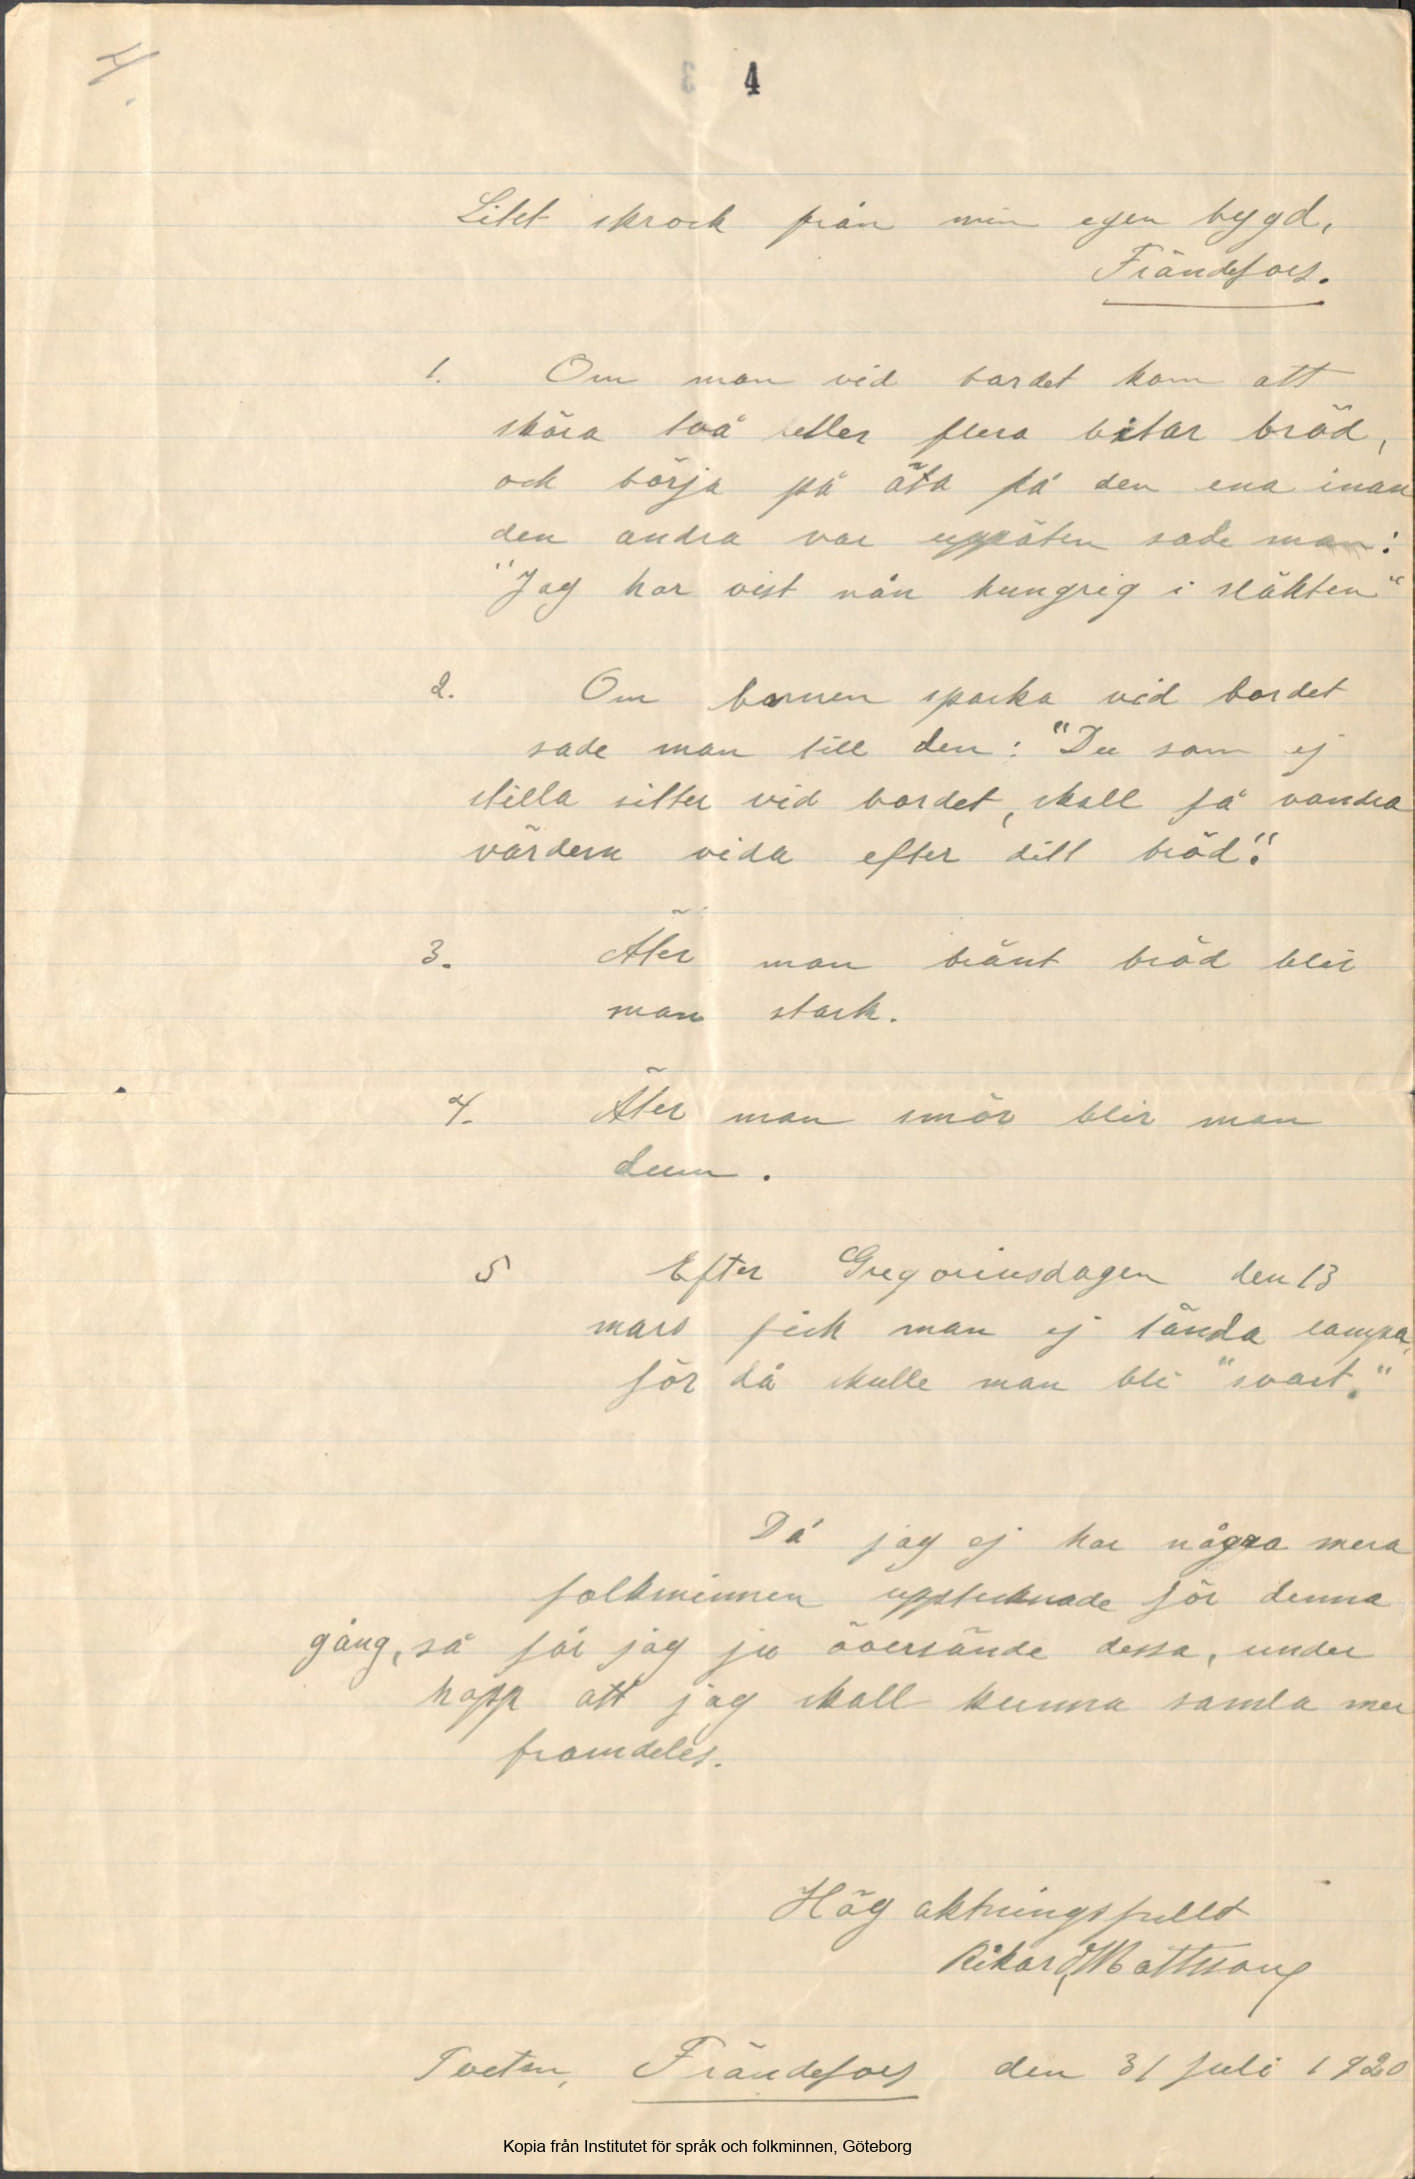 4.
3 4
Litet skrock från min egen bygd,
Frändefors.
1. Om man vid bordet kom att
skära två eller flera bitar bröd,
och börja på äta på den ena inan
den andra var uppäten sade man:
"Jag har vist nån hungrig i släkten"
2. Om barnen sparka vid bordet
sade man till den: "Du som ej
stilla sitter vid bordet, skall få vandra
värden vida efter ditt bröd".
3. Äter man bränt bröd blir
man stark.
4. Äter man smör blir man
dum.
5 Efter Gregoriusdagen den 13
mars fick man ej tända lampa,
för då skulle man bli "svart."
Då jag ej har några mera
folkminnen upptecknade för denna
gång, så får jag ju översände dessa, under
hopp att jag skall kunna samla mer
framdeles.
Hög aktningsfullt
Rikard Mattsson
Tveten, Frändefors den 31 juli 1920
Kopia från Institutet för språk och folkminnen, Göteborg